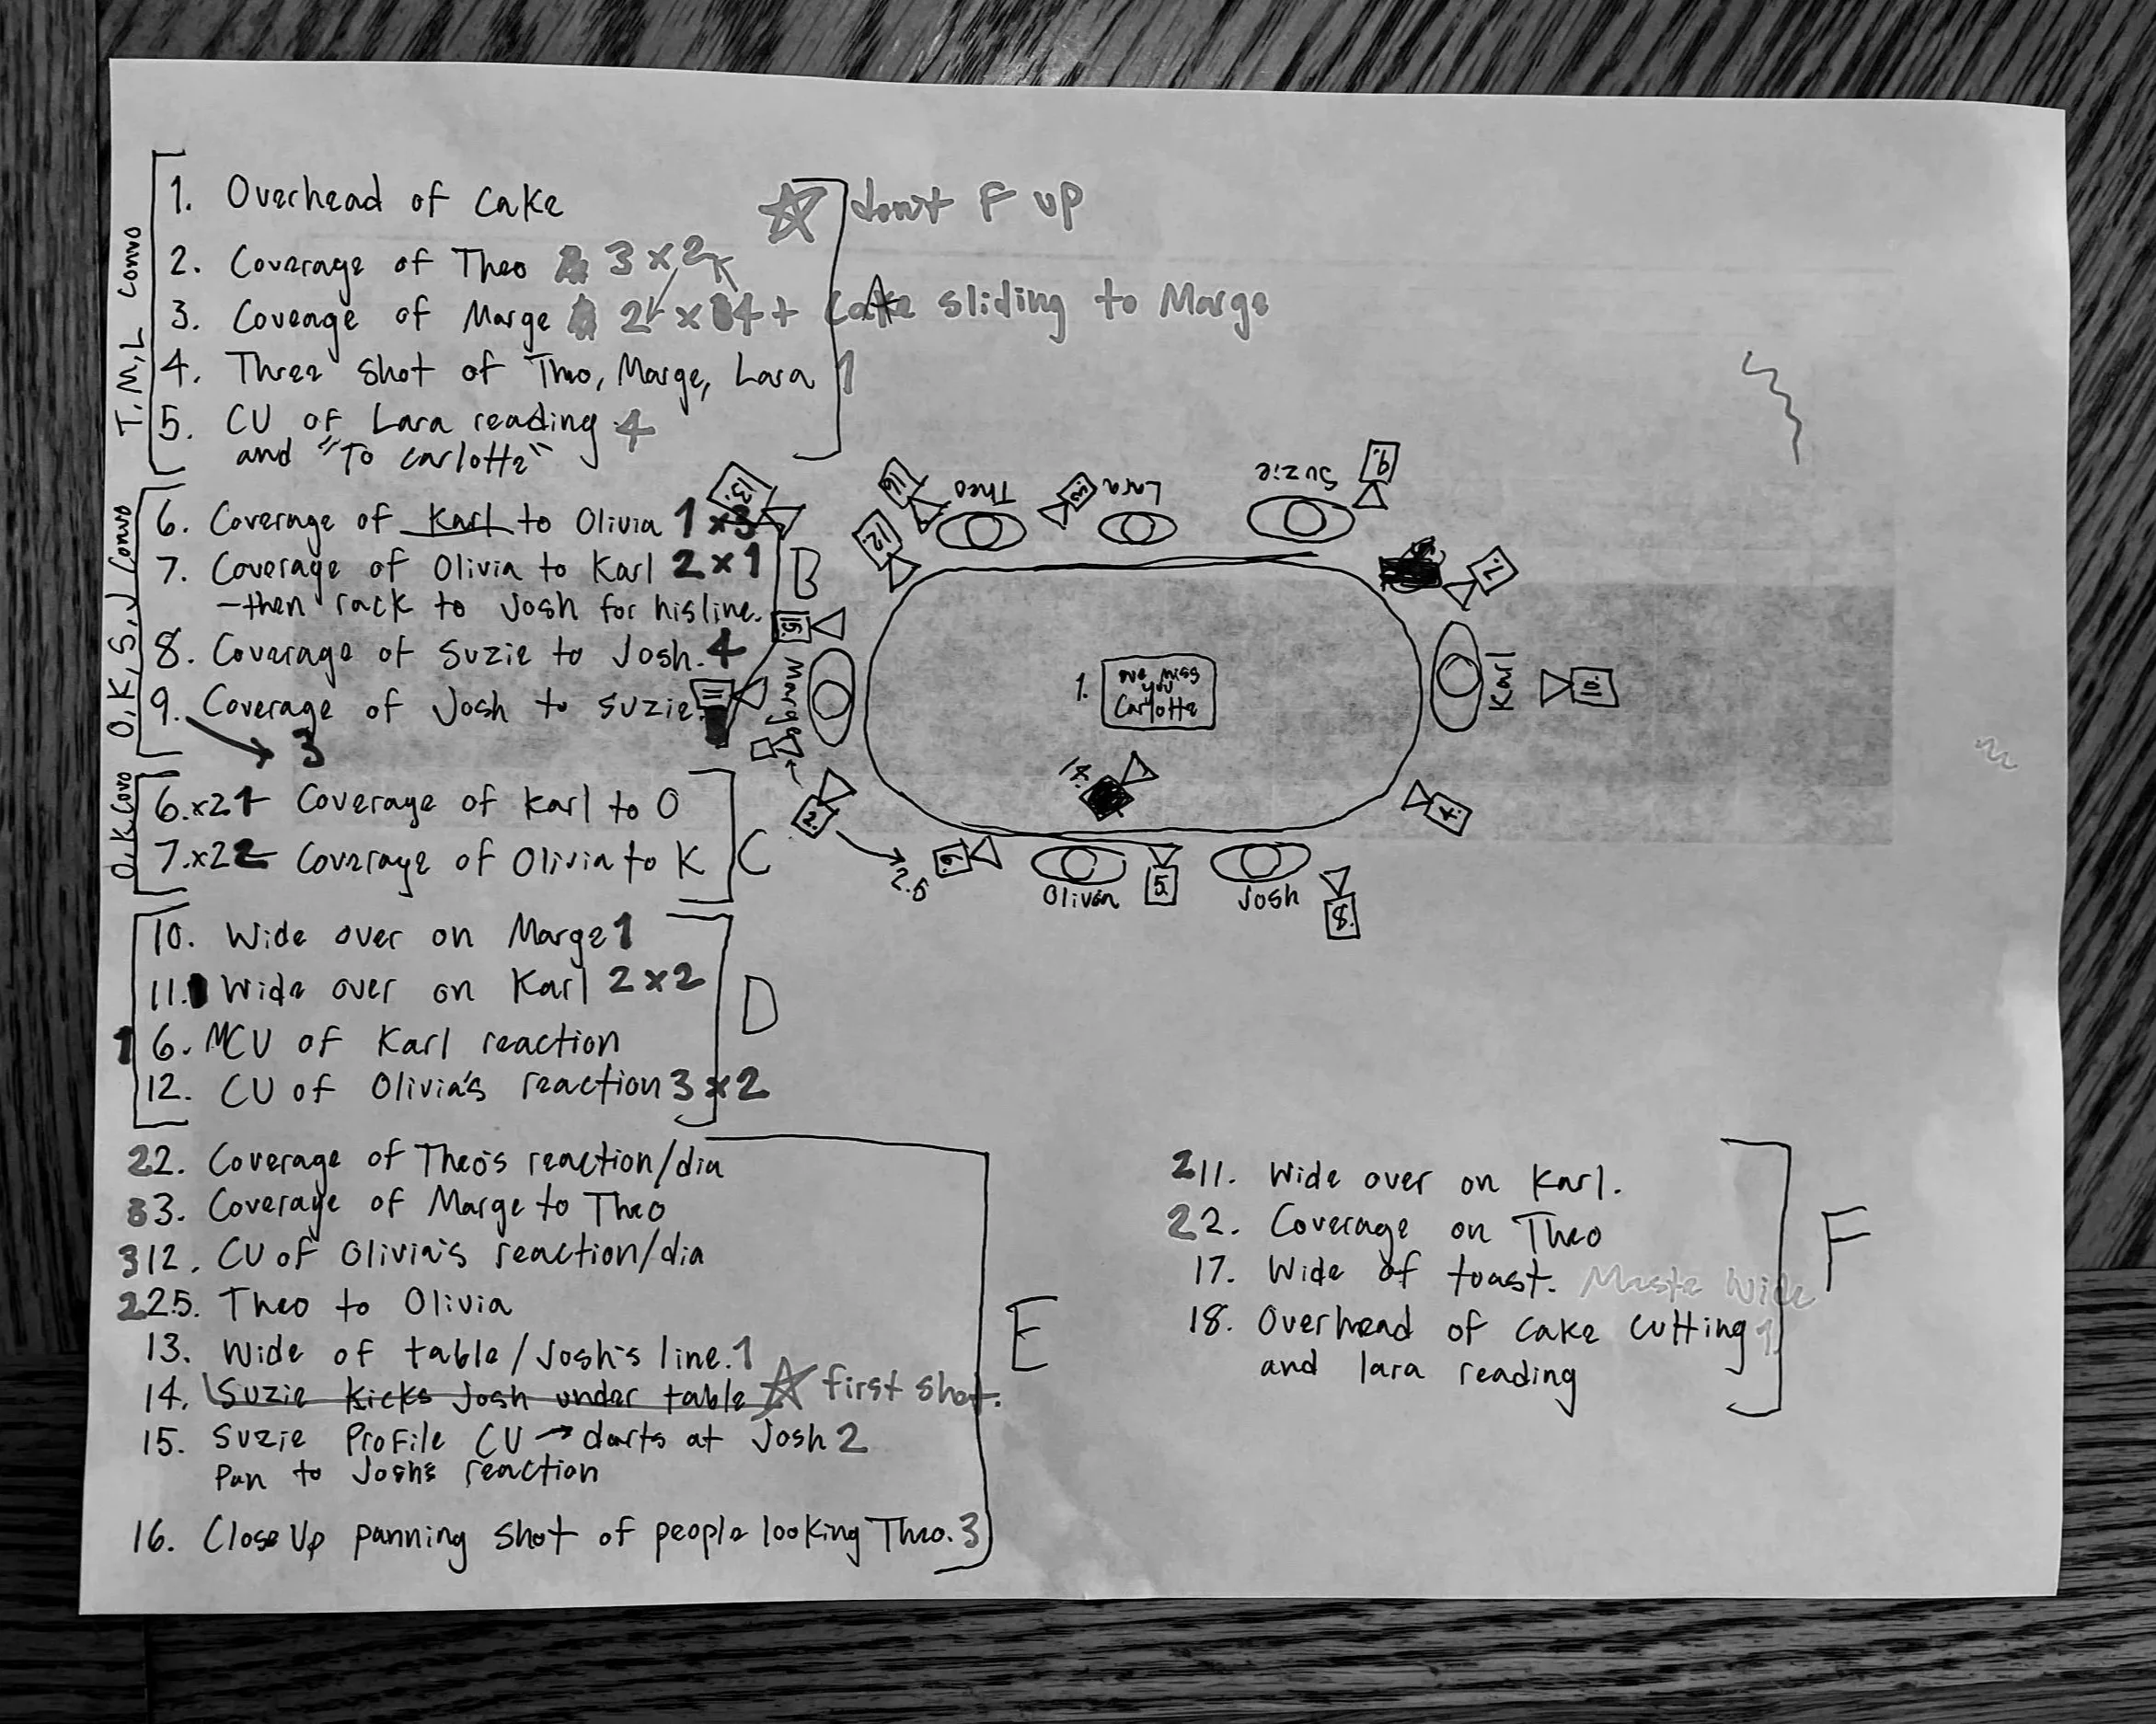 T, M, L Convo
1. Overhead of cake
don't F up
2. Coverage of Theo 3 x 2
3. Coveage of Marge 2 x 4 + Cake sliding to Marge
4. Three shot of Theo, Marge, Lara 1
5. CU of Lara reading 4
and "To Carlotte"
O, K, S, J Convo
6. Coverage of Karl to Olivia 1 x 3
7. Coverage of Olivia to Karl 2 x 1
- then rack to Josh for his line.
B
8. Coverage of Suzie to Josh. 4
9. Coverage of Josh to Suzie.
3
O, K Convo
6. x2 1 - Coverage of Karl to O
7. x2 2 - Coverage of Olivia to K
C
10. Wide over on Marge 1
11. Wide over on Karl 2 x 2
1 6. MCU of Karl reaction
12. CU of Olivia's reaction 3 x 2
D
22. Coverage of Theo's reaction/dia
33. Coverage of Marge to Theo
312. CU of Olivia's reaction/dia
22.5. Theo to Olivia
13. Wide of table/Josh's line. 1
14. Suzie kicks Josh under table first shot.
15. Suzie Profile CU → darts at Josh 2
Pan to Josh's reaction
16. Close Up panning shot of people looking Theo. 3
E
211. Wide over on Karl.
22. Coverage on Theo
17. Wide of toast. Master Wide
18. Overhead of cake cutting 1
and lara reading
F
13.
16.
Theo
3.
Lara
Suzie
9.
12.
7.
15.
Marge
11
1.
we miss
you
Carlotte
Karl
10.
18.
4.
2.
2.5
6.
Olivia
5.
Josh
8.